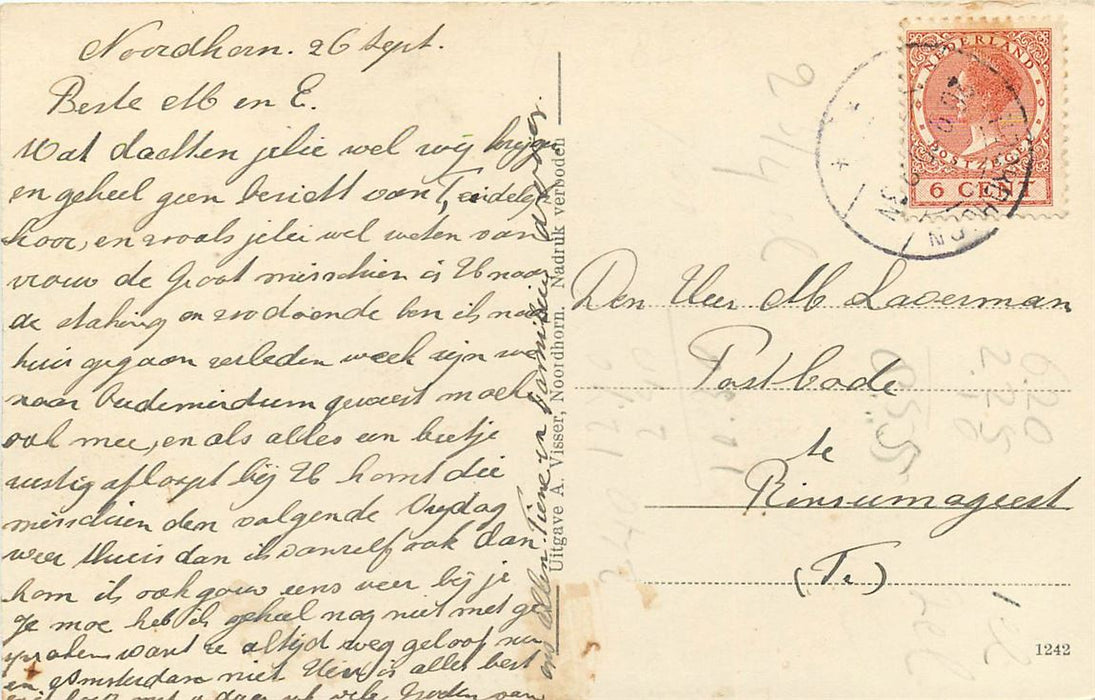 Noordhorn. 26 Sept.
Beste M en E.
Wat dachten jelie wel wij krijgen
en geheel geen bericht van T, eindelijk
hoor, en zooals jelie wel weten van
vrouw de Groot misschien is H naar
de staking en zodoende ben ik naar
huis gegaan verleden week zijn we
naar Oudemirdum geweest moek
ook mee, en als alles een beetje
rustig afloopt bij H komt die
misschien den volgende Vrijdag
weer thuis dan ik vanzelf ook dan
kom ik ook gouw eens weer bij je
Je moe heb ik geheel nog niet met ge
sproken want ze altijd weg geloof nu
in Amsterdam niet Hier is alles best
ons allen Tiene
Uitgave A. Visser, Noordhorn. Nadruk verboden
NEDERLAND
POSTZEGEL
6 CENT
Den Heer M Laverman
Postbode
te
Rinsumageest
(Fr)
6.20
2.25
1242